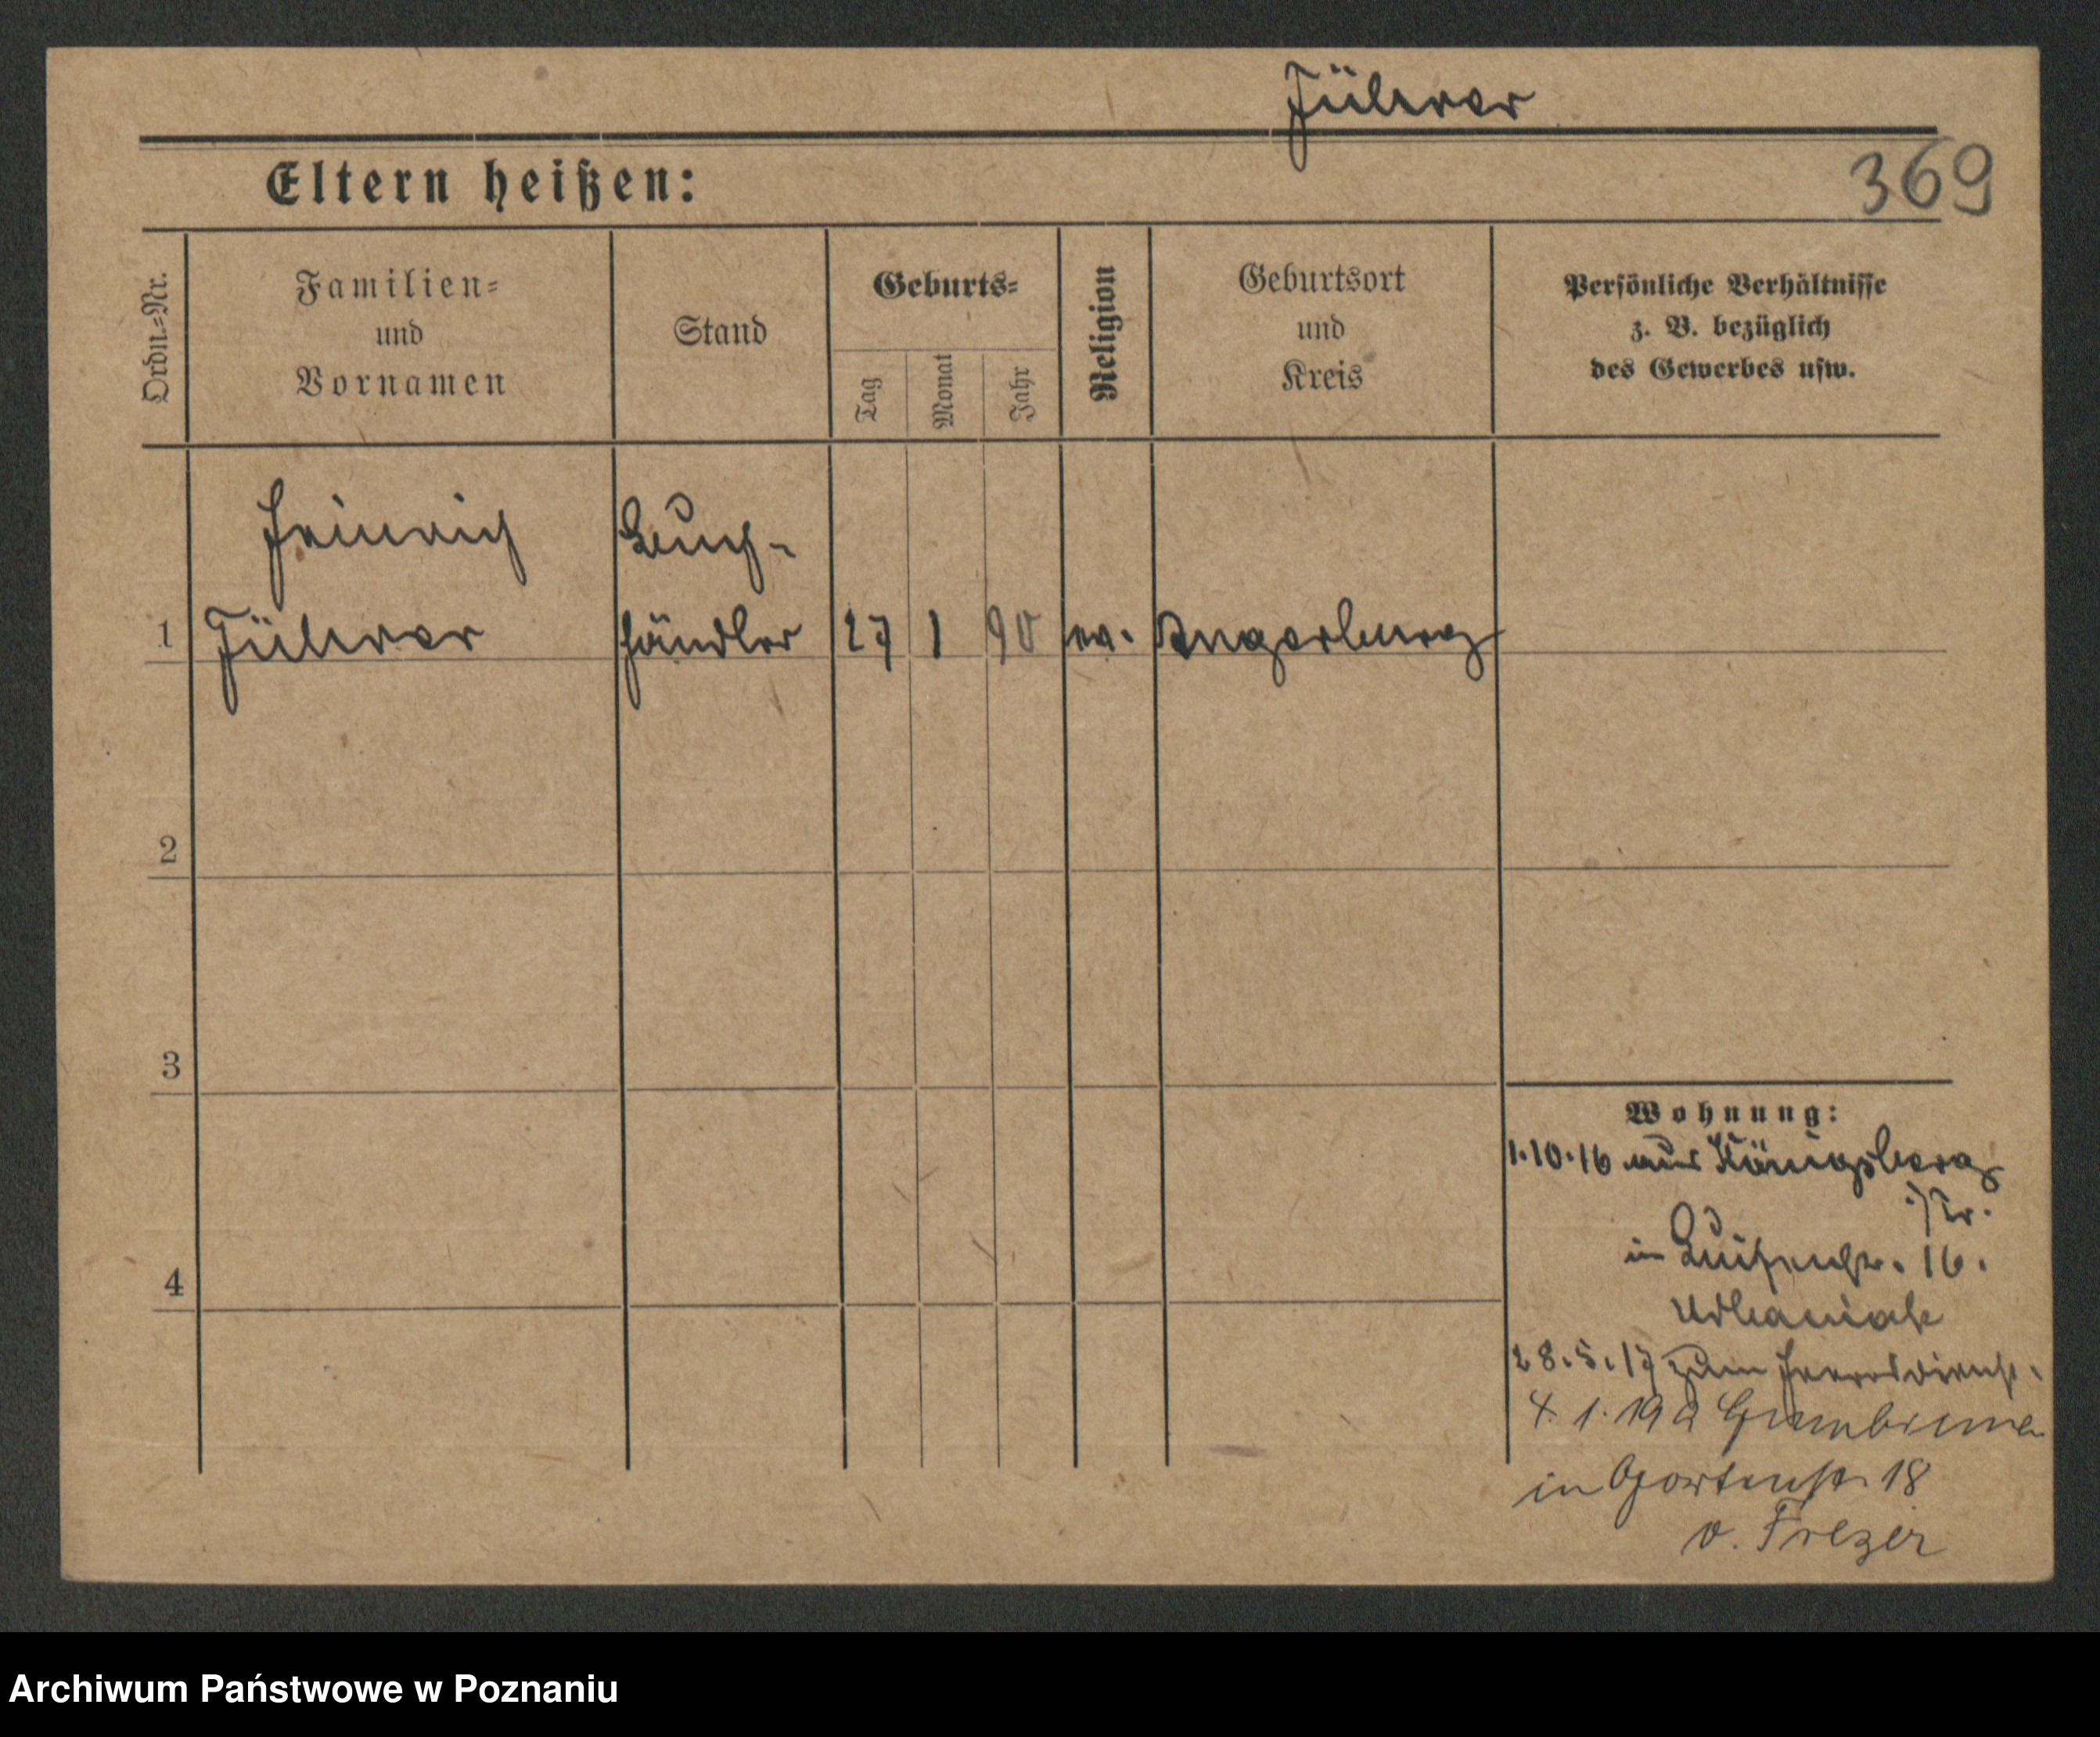 Führer
369
Eltern heißen:
Ordn.-Nr.
Familien-
und
Vornamen
Stand
Geburts-
Tag
Monat
Jahr
Religion
Geburtsort
und
Kreis
Persönliche Verhältnisse
z. B. bezüglich
des Gewerbes usw.
Heinrich
Buch-
1 Führer händler 27 1 90 ev. Angerburg
2
3
4
Wohnung:
1.10.16 aus Königsberg
i/Pr.
in Luisenstr. 16.
Urbaniak
28.5.17 zum Heeresdienst.
4.1.19 a Gumbinnen
in Gartenstr. 18
v. Frezer
Archiwum Państwowe w Poznaniu